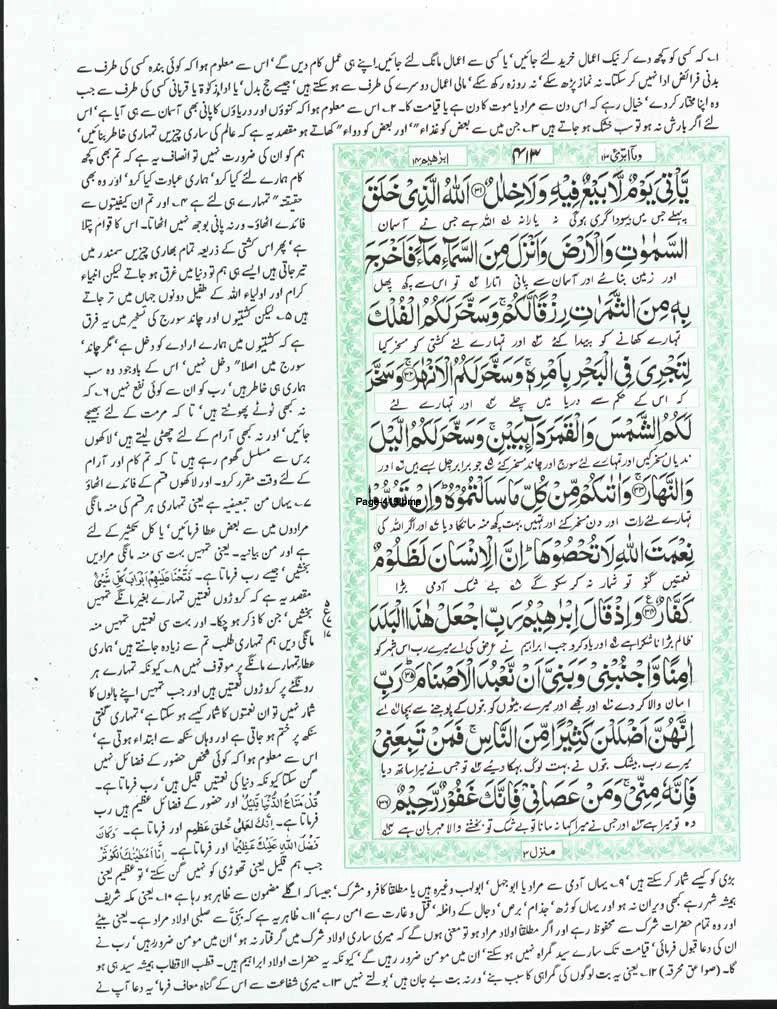 ۱۔ کہ کسی کو کچھ دے کر نیک اعمال خرید لئے جائیں‘ یا کسی سے اعمال مانگ لئے جائیں۔ اپنے ہی عمل کام دیں گے‘ اس سے معلوم ہوا کہ کوئی بندہ کسی کی طرف سے
بدنی فرائض ادا نہیں کر سکتا۔ نہ نماز پڑھ سکے‘ نہ روزہ رکھ سکے‘ مالی اعمال دوسرے کی طرف سے ہو سکتے ہیں‘ جیسے حج بدل‘ یا اداءِ زکوٰۃ یا قربانی کسی کی طرف سے جب
وہ اپنا مختار کر دے‘ خیال رہے کہ اس دن سے مراد یا موت کا دن ہے یا قیامت کا۔ ۲۔ اس سے معلوم ہوا کہ کنوؤں اور دریاؤں کا پانی بھی آسمان سے ہی آیا ہے‘ اس
لئے اگر بارش نہ ہو تو سب خشک ہو جاتے ہیں ۳۔ جن میں سے بعض کو غذاء‘‘ اور بعض کو دواء‘‘ کھاتے ہو مقصد یہ ہے کہ عالم کی ساری چیزیں تمہاری خاطر بنائیں‘
ہم کو ان کی ضرورت نہیں تو انصاف یہ ہے کہ تم بھی کچھ
کام ہمارے لئے کیا کرو‘ ہماری عبادت کیا کرو‘ اور وہ بھی
حقیقتہً تمہارے ہی لئے ہے ۴۔ اور تم ان کیفیتوں سے
فائدے اٹھاؤ۔ ورنہ پانی بوجھ نہیں اٹھاتا۔ اس کا قوام پتلا
ہے‘ پھر اس کشتی کے ذریعہ تمام بھاری چیزیں سمندر میں
تیر جاتی ہیں ایسے ہی ہم تو دنیا میں غرق ہو جاتے لیکن انبیاء
کرام اور اولیاء اللہ کے طفیل دونوں جہاں میں تر جاتے
ہیں ۵۔ لیکن کشتیوں اور چاند سورج کی تسخیر میں یہ فرق
ہے کہ کشتیوں میں ہمارے ارادے کو دخل ہے‘ مگر چاند‘
سورج میں اصلاً دخل نہیں‘ اس کے باوجود وہ سب
ہماری ہی خاطر ہیں‘ رب کو ان سے کوئی نفع نہیں ۶۔ کہ
نہ کبھی ٹوٹے پھوٹتے ہیں‘ تا کہ مرمت کے لئے بھیجے
جائیں‘ اور نہ کبھی آرام کے لئے چھٹی لیتے ہیں‘ لاکھوں
برس سے مسلسل گھوم رہے ہیں تا کہ تم کام اور آرام
کے لئے وقت مقرر کرو۔ اور لاکھوں قسم کے فائدے اٹھاؤ
۷۔ یہاں من تبعیضیہ ہے یعنی تمہاری ہر قسم کی منہ مانگی
مرادوں میں سے بعض عطا فرمائیں‘ یا کل تکثیر کے لئے
ہے اور من بیانیہ۔ یعنی تمہیں بہت سی منہ مانگی مرادیں
بخشیں‘ جیسے رب فرماتا ہے۔ فَتَحْنَا عَلَيْهِمْ اَبْوَابَ كُلِّ شَيْءٍ
مقصد یہ ہے کہ کروڑوں نعمتیں تمہارے بغیر مانگے تمہیں
بخشیں‘ جن کا ذکر ہو چکا۔ اور بہت سی نعمتیں تمہیں منہ
مانگی دیں ہم تمہاری طلب تم سے زیادہ جانتے ہیں‘ ہماری
عطا تمہارے مانگنے پر موقوف نہیں ۸۔ کیونکہ تمہارے ہر
رونگٹے پر کروڑوں نعمتیں ہیں اور جب تمہیں اپنے بالوں کا
شمار نہیں تو ان نعمتوں کا شمار کیسے ہو سکتا ہے‘ تمہاری گنتی
سنکھ پر ختم ہو جاتی ہے اور وہاں سنکھ سے ابتداء ہوتی ہے‘
اس سے معلوم ہوا کہ کوئی شخص حضور کے فضائل نہیں
گن سکتا کیونکہ دنیا کی نعمتیں قلیل ہیں‘ رب فرماتا ہے۔
قُلْ مَتَاعُ الدُّنْيَا قَلِيْلٌ اور حضور کے فضائل عظیم ہیں رب
فرماتا ہے۔ اِنَّكَ لَعَلٰى خُلُقٍ عَظِيْمٍ اور فرماتا ہے۔ وَكَانَ
فَضْلُ اللّٰهِ عَلَيْكَ عَظِيْمًا اور فرماتا ہے۔ اِنَّا اَعْطَيْنٰكَ الْكَوْثَرَ
جب ہم قلیل یعنی تھوڑی کو نہیں گن سکتے‘ تو عظیم یعنی
ع
۱۷
وما ابرئ ۱۳
۴۱۳
ابراهيم ۱۴
يَّاْتِيَ يَوْمٌ لَّا بَيْعٌ فِيْهِ وَلَا خِلٰلٌ ﴿۳۱﴾ اَللّٰهُ الَّذِيْ خَلَقَ
پہلے جس میں نہ سوداگری ہوگی نہ یارانہ اللہ ہے جس نے آسمان
السَّمٰوٰتِ وَالْاَرْضَ وَاَنْزَلَ مِنَ السَّمَآءِ مَآءً فَاَخْرَجَ
اور زمین بنائے اور آسمان سے پانی اتارا تو اس سے کچھ پھل
بِهٖ مِنَ الثَّمَرٰتِ رِزْقًا لَّكُمْ وَسَخَّرَ لَكُمُ الْفُلْكَ
تمہارے کھانے کو پیدا کئے اور تمہارے لئے کشتی کو مسخر کیا
لِتَجْرِيَ فِي الْبَحْرِ بِاَمْرِهٖ وَسَخَّرَ لَكُمُ الْاَنْهٰرَ ﴿۳۲﴾ وَسَخَّرَ
کہ اس کے حکم سے دریا میں چلے اور تمہارے لئے
لَكُمُ الشَّمْسَ وَالْقَمَرَ دَآىِٕبَيْنِ وَسَخَّرَ لَكُمُ الَّيْلَ
ندیاں مسخر کیں اور تمہارے لئے سورج اور چاند مسخر کئے جو برابر چل رہے ہیں اور
وَالنَّهَارَ ﴿۳۳﴾ وَاٰتٰىكُمْ مِّنْ كُلِّ مَا سَاَلْتُمُوْهُ وَاِنْ تَعُدُّوْا
تمہارے لئے رات اور دن مسخر کئے اور تمہیں بہت کچھ منہ مانگا دیا اور اگر اللہ کی
نِعْمَتَ اللّٰهِ لَا تُحْصُوْهَا اِنَّ الْاِنْسَانَ لَظَلُوْمٌ
نعمتیں گنو تو شمار نہ کر سکو گے بے شک آدمی بڑا
كَفَّارٌ ﴿۳۴﴾ وَاِذْ قَالَ اِبْرٰهِيْمُ رَبِّ اجْعَلْ هٰذَا الْبَلَدَ
ظالم بڑا ناشکرا ہے اور یاد کرو جب ابراہیم نے عرض کی اے میرے رب اس شہر کو
اٰمِنًا وَّاجْنُبْنِيْ وَبَنِيَّ اَنْ نَّعْبُدَ الْاَصْنَامَ ﴿۳۵﴾ رَبِّ
امان والا کر دے اور مجھے اور میرے بیٹوں کو بتوں کے پوجنے سے بچا اے
اِنَّهُنَّ اَضْلَلْنَ كَثِيْرًا مِّنَ النَّاسِ فَمَنْ تَبِعَنِيْ
میرے رب بیشک بتوں نے بہت لوگ بہکا دیئے تو جس نے میرا ساتھ دیا
فَاِنَّهٗ مِنِّيْ وَمَنْ عَصَانِيْ فَاِنَّكَ غَفُوْرٌ رَّحِيْمٌ ﴿۳۶﴾
وہ تو میرا ہے اور جس نے میرا کہا نہ مانا تو بے شک تو بخشنے والا مہربان ہے
منزل ۳
Page-413.bmp
بڑی کو کیسے شمار کر سکتے ہیں‘ ۹۔ یہاں آدمی سے مراد یا ابوجہل‘ ابولہب وغیرہ ہیں یا مطلقاً کافر و مشرک‘ جیسا کہ اگلے مضمون سے ظاہر ہو رہا ہے ۱۰۔ یعنی مکہ شریف
ہمیشہ شہر رہے کبھی ویران نہ ہو اور یہاں کوڑھ‘ جذام‘ برص‘ دجال کے داخلہ‘ قتل و غارت سے امن رہے‘ ۱۱۔ ظاہر یہ ہے کہ بَنِیَّ سے صلبی اولاد مراد ہے۔ یعنی بیٹے
اور وہ تمام حضرات شرک سے محفوظ رہے اور اگر مطلقاً اولاد مراد ہو تو معنی ہوں گے کہ میری ساری اولاد شرک میں گرفتار نہ ہو‘ ان میں مومن ضرور رہیں‘ رب نے
ان کی دعا قبول فرمائی‘ قیامت تک سارے سید گمراہ نہیں ہو سکتے‘ ان میں مومن ضرور رہیں گے‘ کیونکہ یہ حضرات اولاد ابراہیم ہیں۔ قطب الاقطاب ہمیشہ سید ہی ہو
گا۔ (صواعق محرقہ) ۱۲۔ یعنی یہ بت لوگوں کی گمراہی کا سبب بنے‘ ورنہ بت بے جان ہیں‘ بولتے نہیں ۱۳۔ میری شفاعت سے اس کے گناہ معاف فرما‘ یہ دعا آپ نے